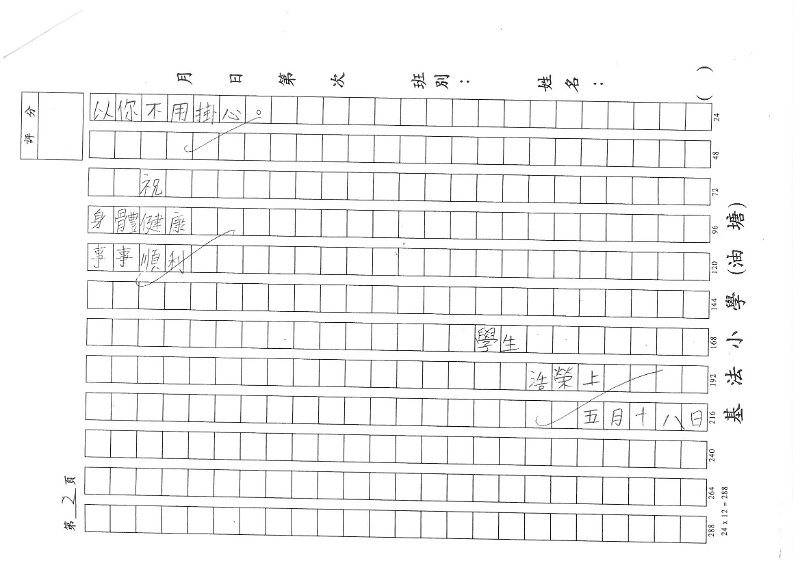 月 日 第 次 班別： 姓名： ( )
評分
以你不用掛心。 24
48
祝 72
身體健康 96
事事順利 120
144
學生 168
浩榮上 192
五月十八日 216
240
264
288
24 x 12 = 288
基法小學(油塘)
第 2 頁